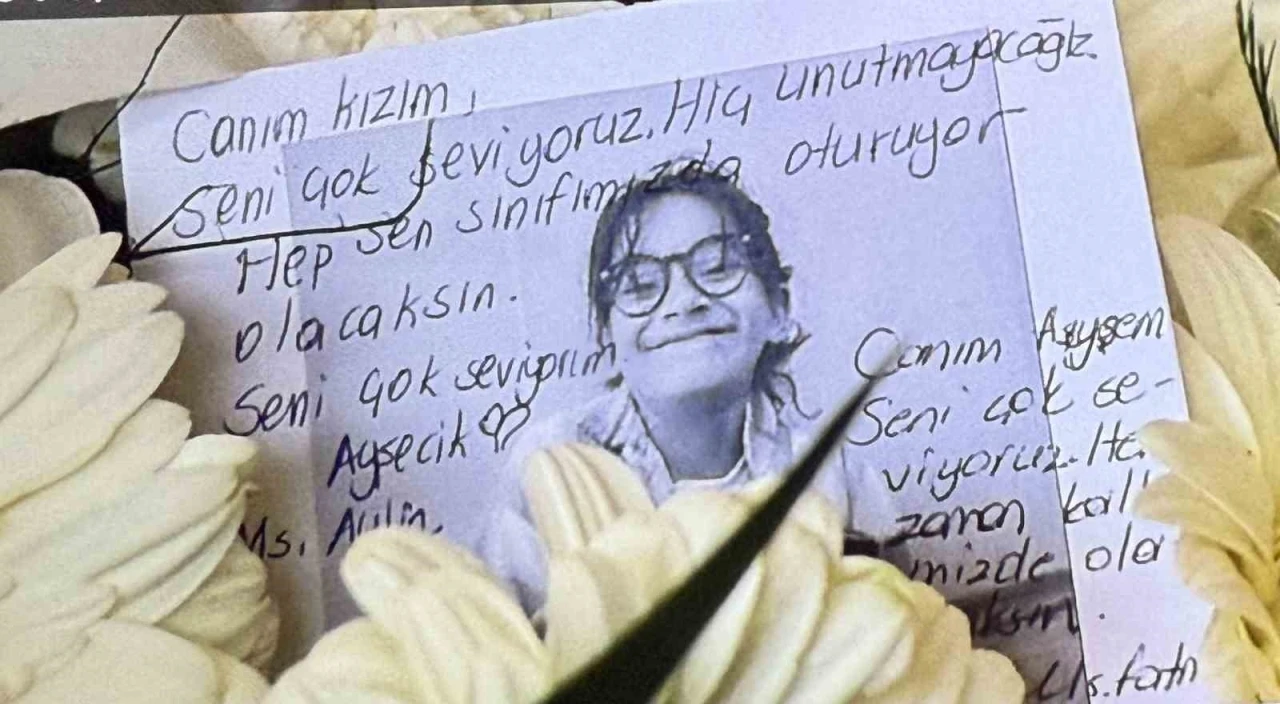 Canım kızım,
Seni çok seviyoruz. Hiç unutmayacağız.
Hep sen sınıfımızda oturuyor
olacaksın.
Seni çok seviyorum
Ayşecik
Ms.
Canım Ayşem
Seni çok se-
viyoruz. He
zaman kal
mizde ola
ksın.